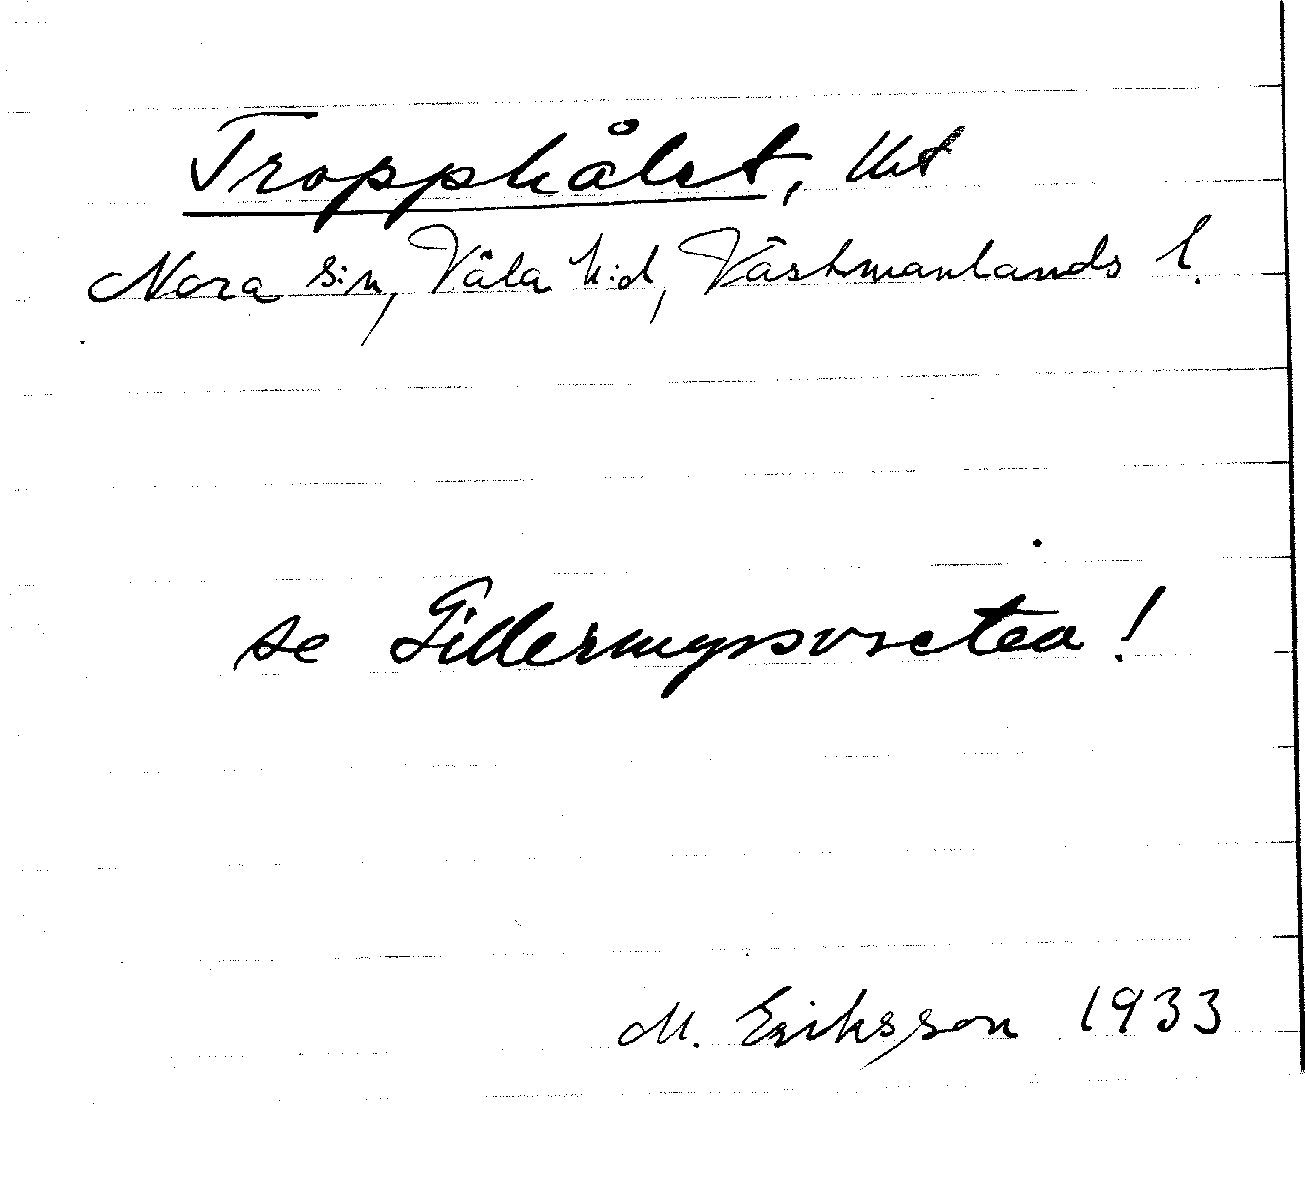 Tropphålet, Utt
Nora s:n, Våla h:d, Västmanlands l.
se Gillermyrsvretea!
M. Eriksson 1933